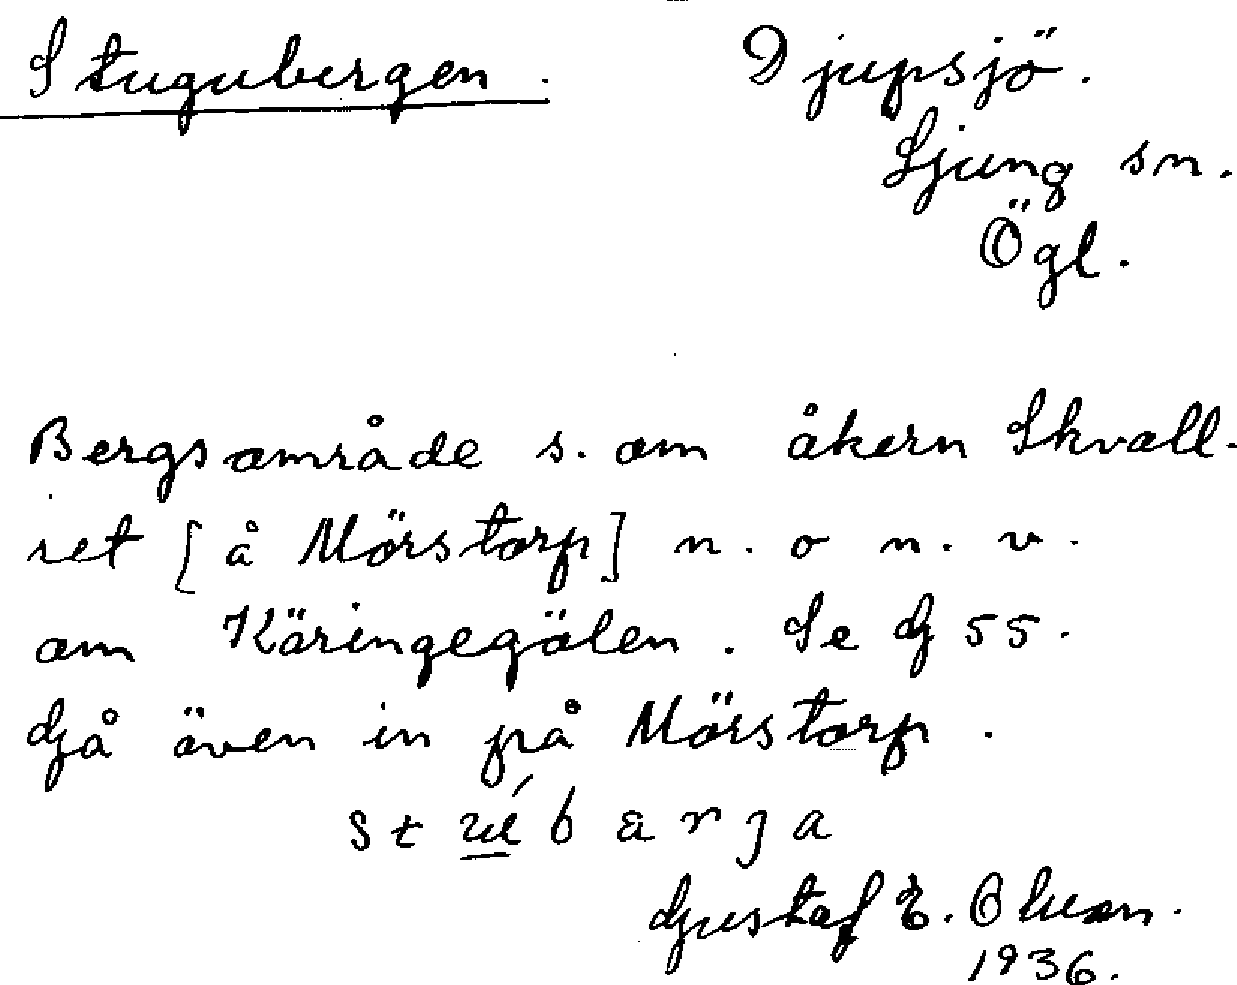 Stugubergen. Djupsjö.
Ljung sn.
Ögl.
Bergsområde s. om åkern Skvall-
ret [å Mörstorp] n. o n. v.
om Käringegölen. Se G 55.
Gå även in på Mörstorp.
Gustaf E. Olsson.
1936.